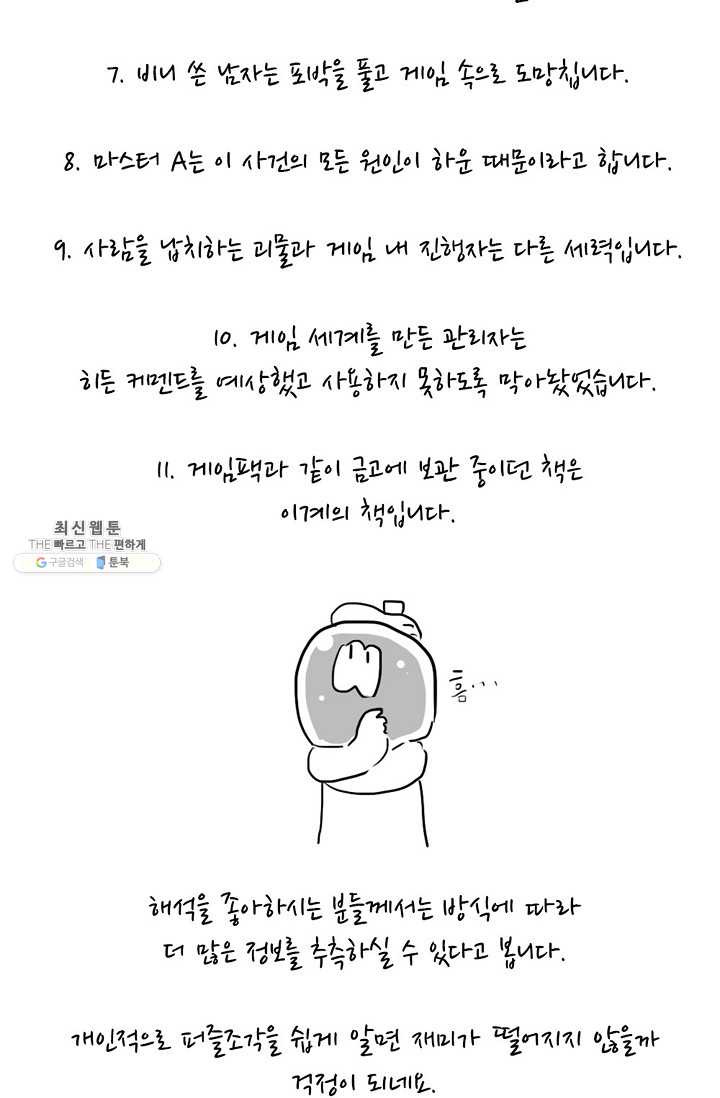 7. 비니 쓴 남자는 포박을 풀고 게임 속으로 도망칩니다.
8. 마스터 A는 이 사건의 모든 원인이 하운 때문이라고 합니다.
9. 사람을 납치하는 괴물과 게임 내 진행자는 다른 세력입니다.
10. 게임 세계를 만든 관리자는
히든 커멘드를 예상했고 사용하지 못하도록 막아놨었습니다.
11. 게임팩과 같이 금고에 보관 중이던 책은
이계의 책입니다.
최신웹툰
THE 빠르고 THE 편하게
구글검색 툰북
흠...
해석을 좋아하시는 분들께서는 방식에 따라
더 많은 정보를 추측하실 수 있다고 봅니다.
개인적으로 퍼즐조각을 쉽게 알면 재미가 떨어지지 않을까
걱정이 되네요.